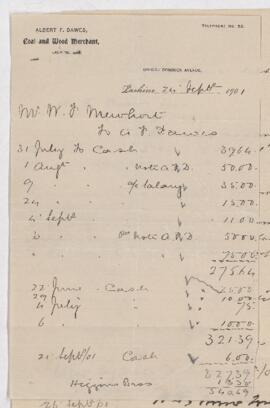 ALBERT F. DAWES,
Coal and Wood Merchant,
TELEPHONE No. 52.
OFFICE: DOMINION AVENUE,
Lachine 21 Septbr 1901
Mr W. J. Mewhort
To A F Dawes
31 July To Cash 39.64
1 Augt " note A.F.D. 50.00
9 " 35.00
24 " 15.00
4 Septb " 11.00
6 " note A.F.D 50.00
" " 75.00
275.64
22 June Cash 25.00
29 " 10.00
4 July " 75
6 " 10.00
321.39
21 Septb/01 Cash 6.00
327.39
Higgins Bros
26 Septb/01